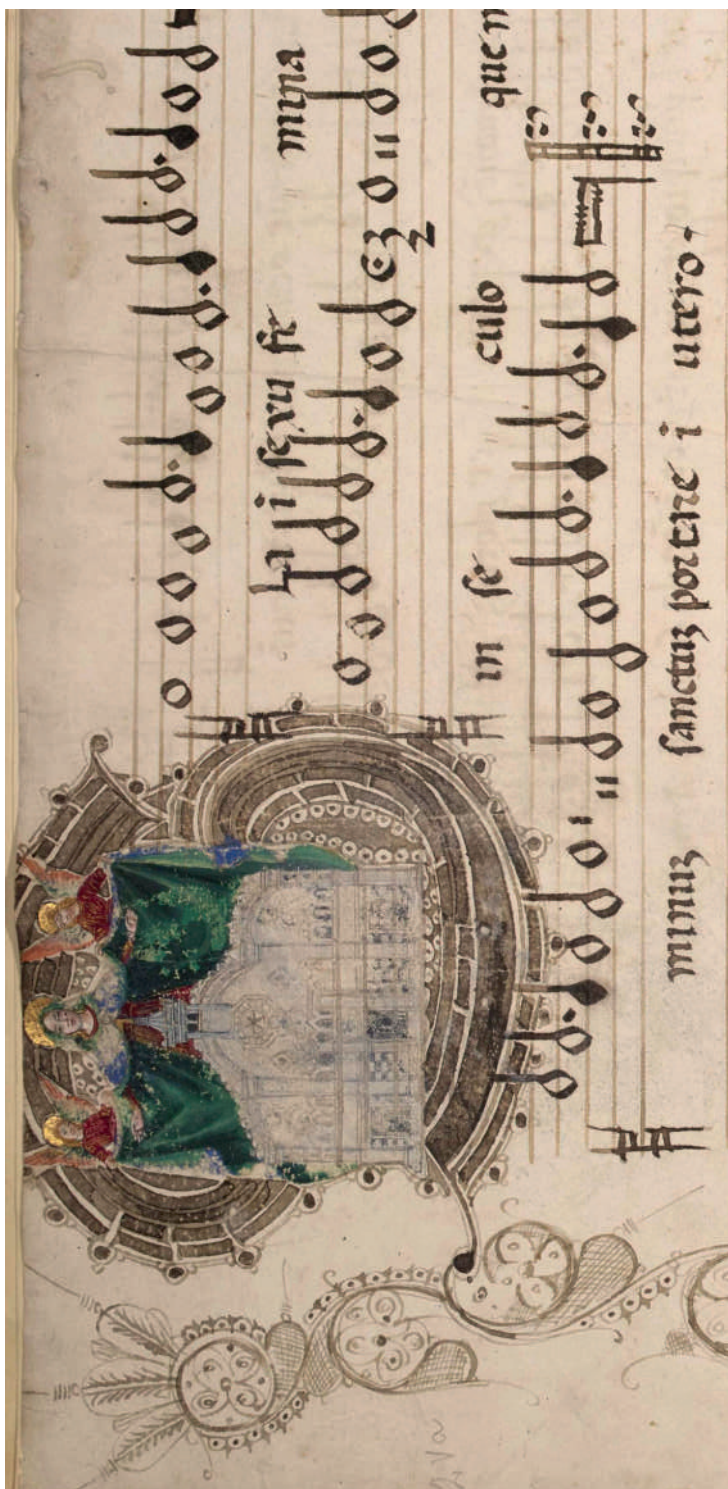 la i sexu fe mina
in se culo quem
minuz sanctuz portare i utero.